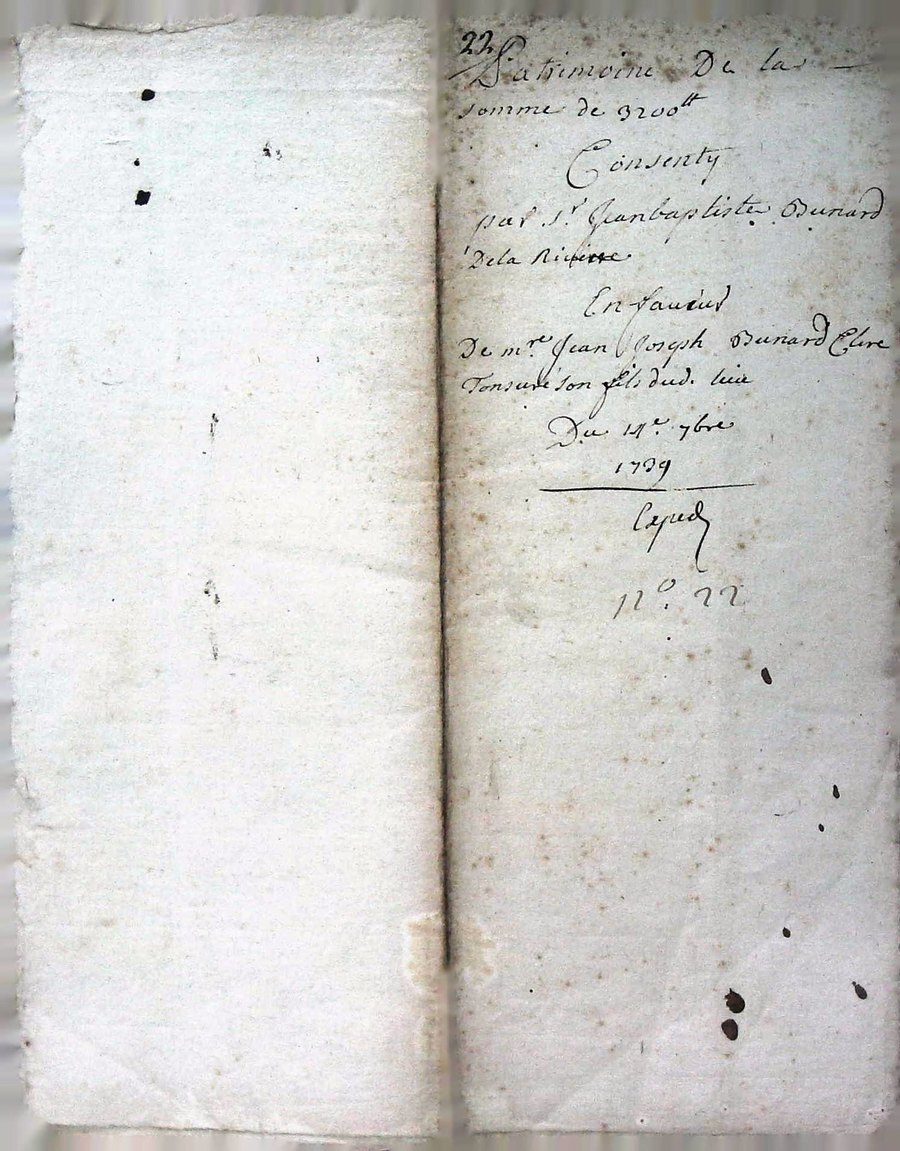 22
Patrimoine De la
somme de 3200tt
Consenty
par Sr Jeanbaptiste Bunard
Dela Riviere
En faveur
De mre Jean Joseph Bunard Clere
Tonsure son fils dud. lieu
Du 14e 7bre
1739
Exped
No. 22